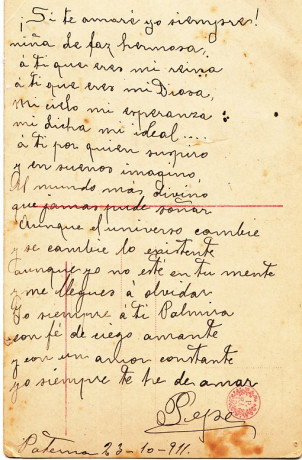 ¡Si te amaré yo siempre!
niña de faz hermosa,
á ti que eres mi reina
á ti que eres mi Diosa,
mi cielo mi esperanza
mi dicha mi ideal....
á ti por quien suspiro
y en sueños imagino,
Al mundo más divino
que jamas pude soñar
Aunque el universo cambie
y se cambie lo existente
aunque yo no esté en tu mente
y me llegues á olvidar
Yo siempre á ti Palmira
con fé de ciego amante
y con un amor constante
yo siempre te he de amar
Pepe
Paterna 23-10-911.